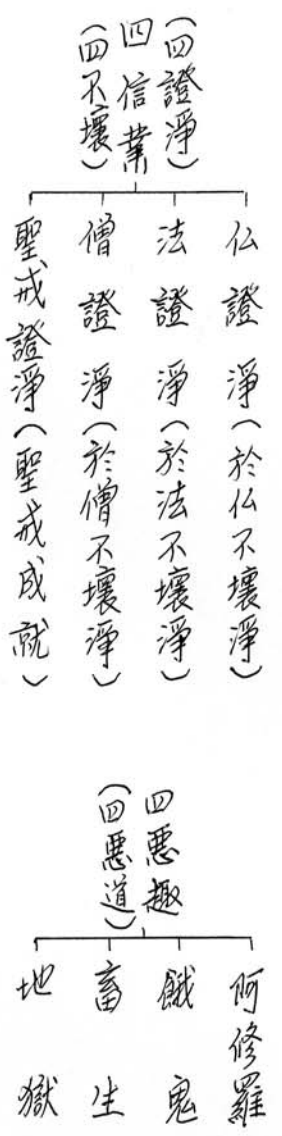 (四證淨)
四信業
(四不壞)
仏證淨(於仏不壞淨)
法證淨(於法不壞淨)
僧證淨(於僧不壞淨)
聖戒證淨(聖戒成就)
四惡趣
(四惡道)
阿修羅
餓鬼
畜生
地獄